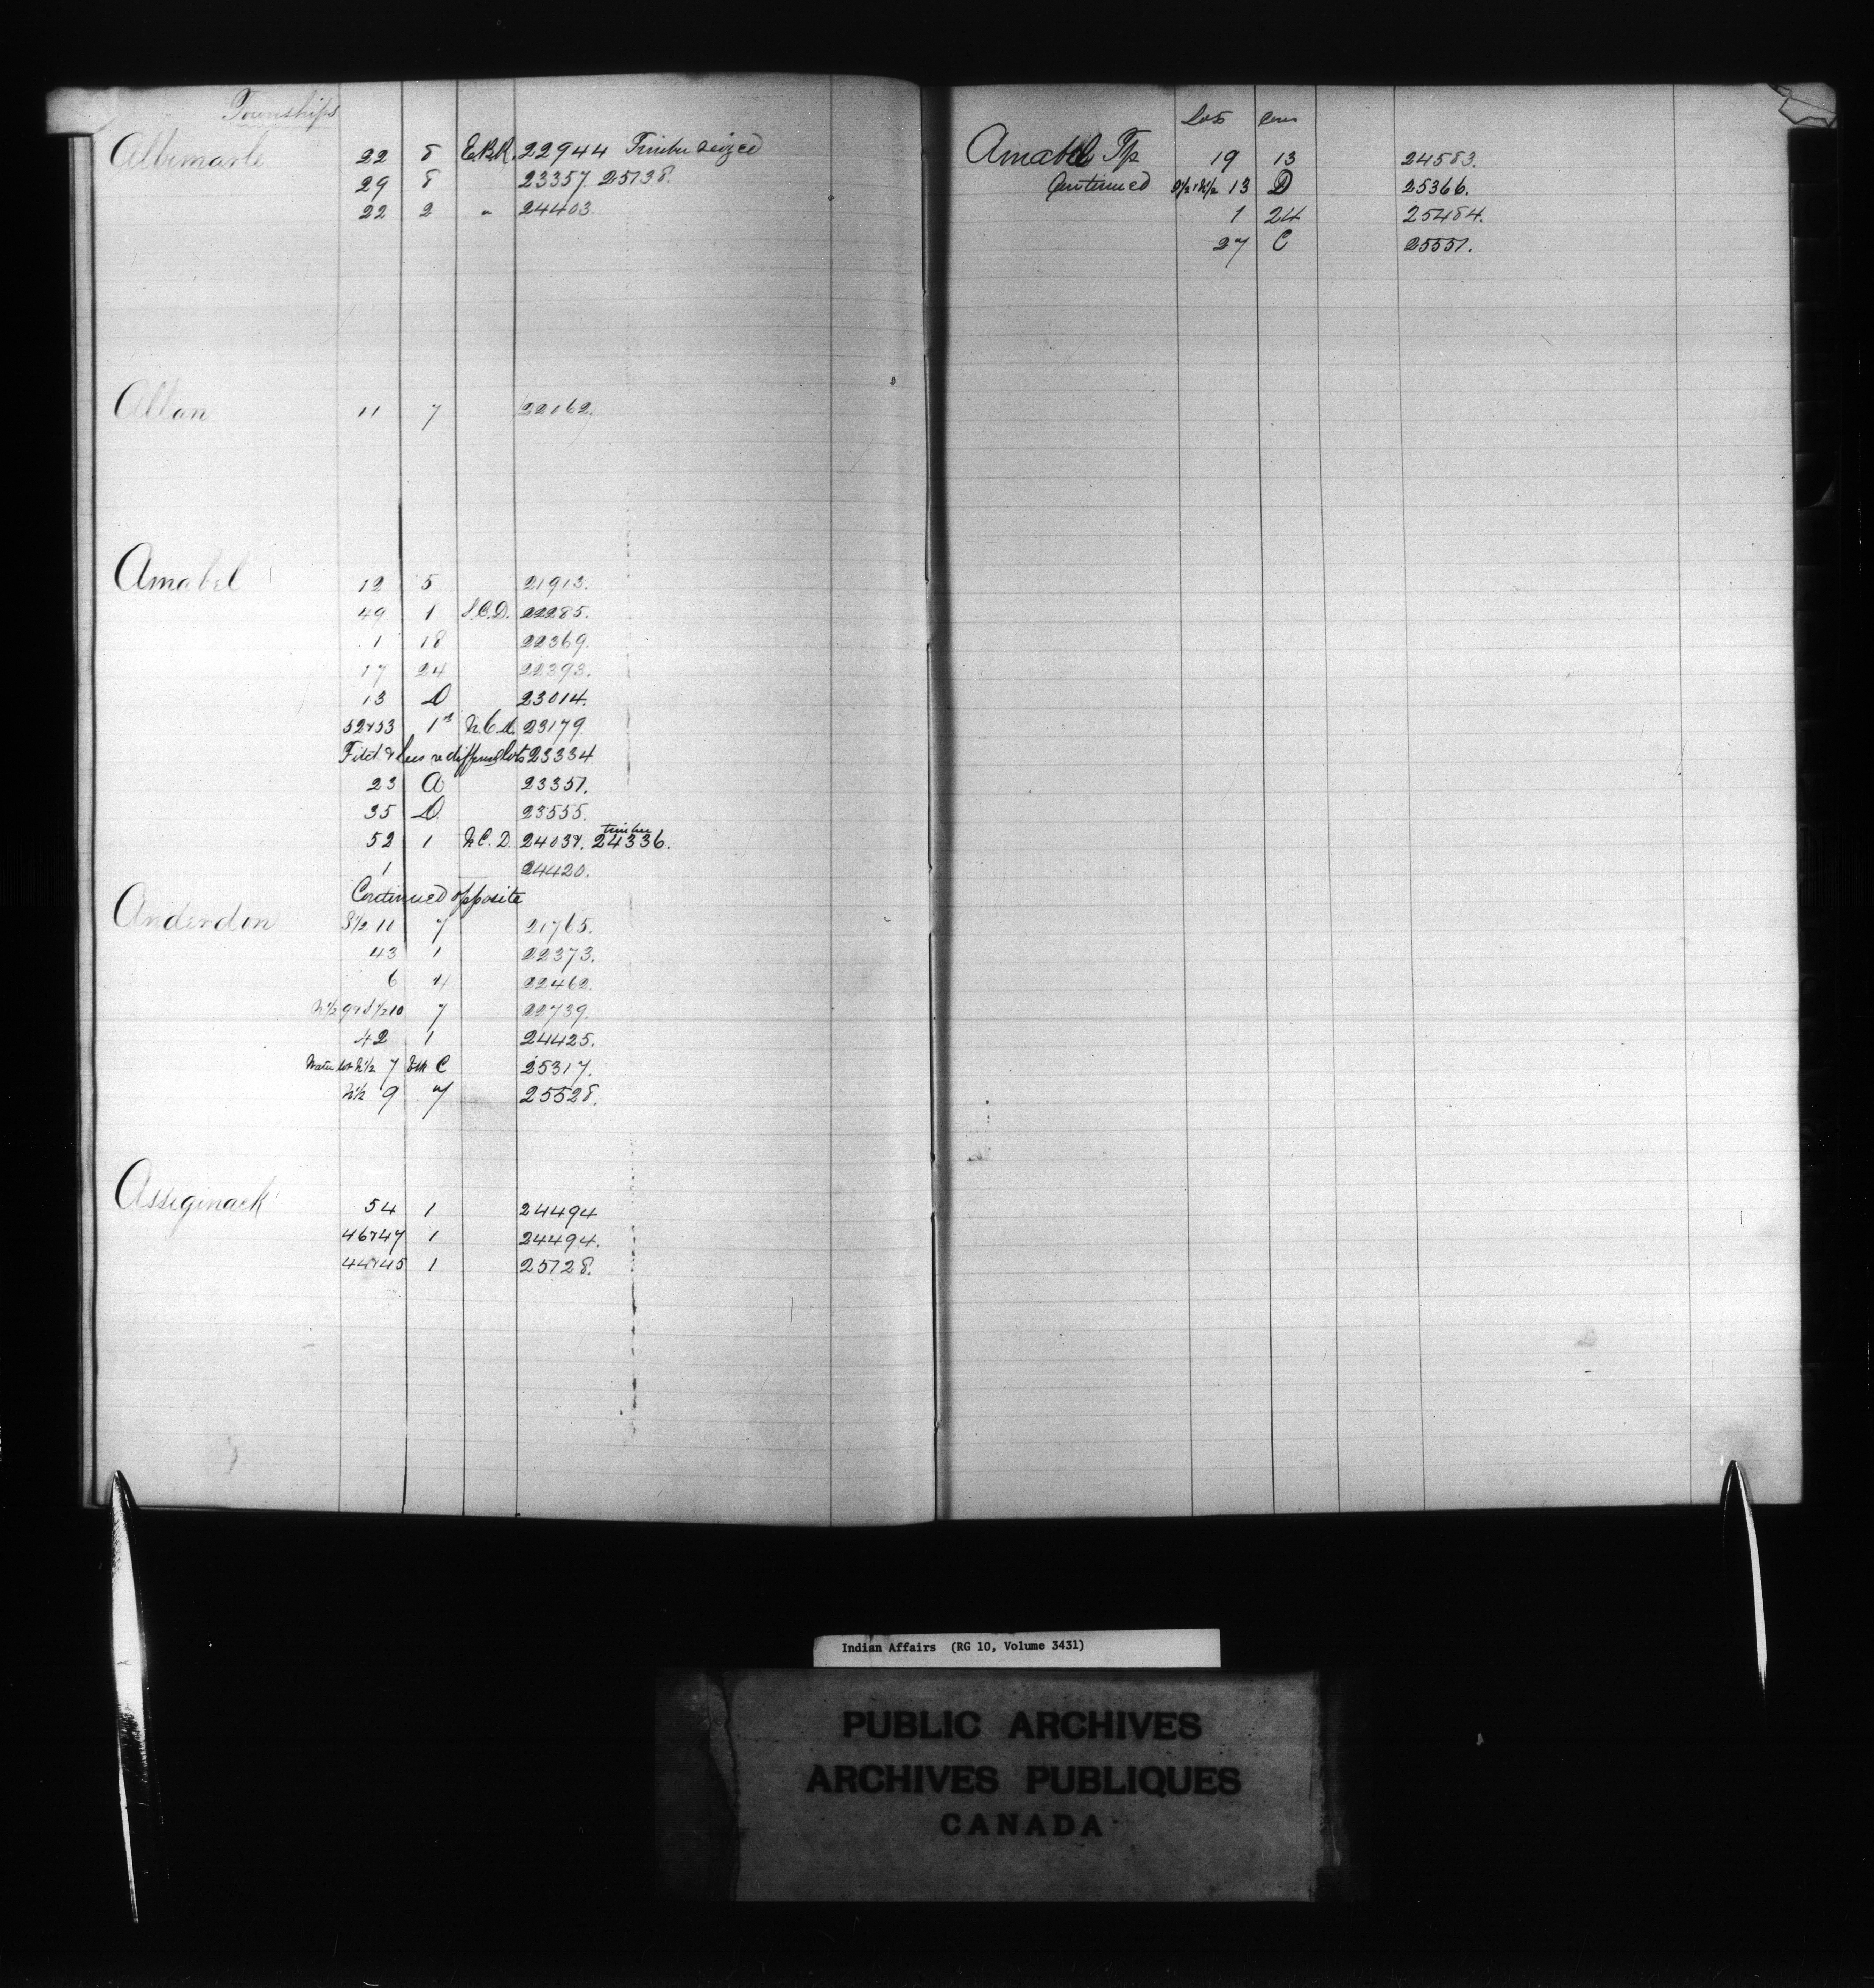 Townships
Albemarle 22 8 E.B.R. 22944 Timber seized
29 8 23357. 25738.
22 2 " 24403.
Allan 11 7 22062.
Amabel 12 5 21913.
49 1 S.C.D. 22285.
1 18 22369.
17 24 22393.
13 D 23014.
52 & 53 1st N.C.D. 23179.
re different lots 23334
23 A 23357.
35 D 23555.
52 1 N.C.D. 24037. timber 24336.
1 24420.
Continued opposite
Anderdon S½ 11 7 21765.
43 1 22373.
6 4 22462.
N½ 9 & S½ 10 7 22739.
42 1 24425.
Water lot N½ 7 C 25317.
N½ 9 7 25528.
Assiginack 54 1 24494
46 & 47 1 24494.
44 & 45 1 25728.
Lots Con
Amabel Tp 19 13 24583.
Continued S½ & N½ 13 D 25366.
1 24 25484.
27 C 25557.
Indian Affairs (RG 10, Volume 3431)
PUBLIC ARCHIVES
ARCHIVES PUBLIQUES
CANADA